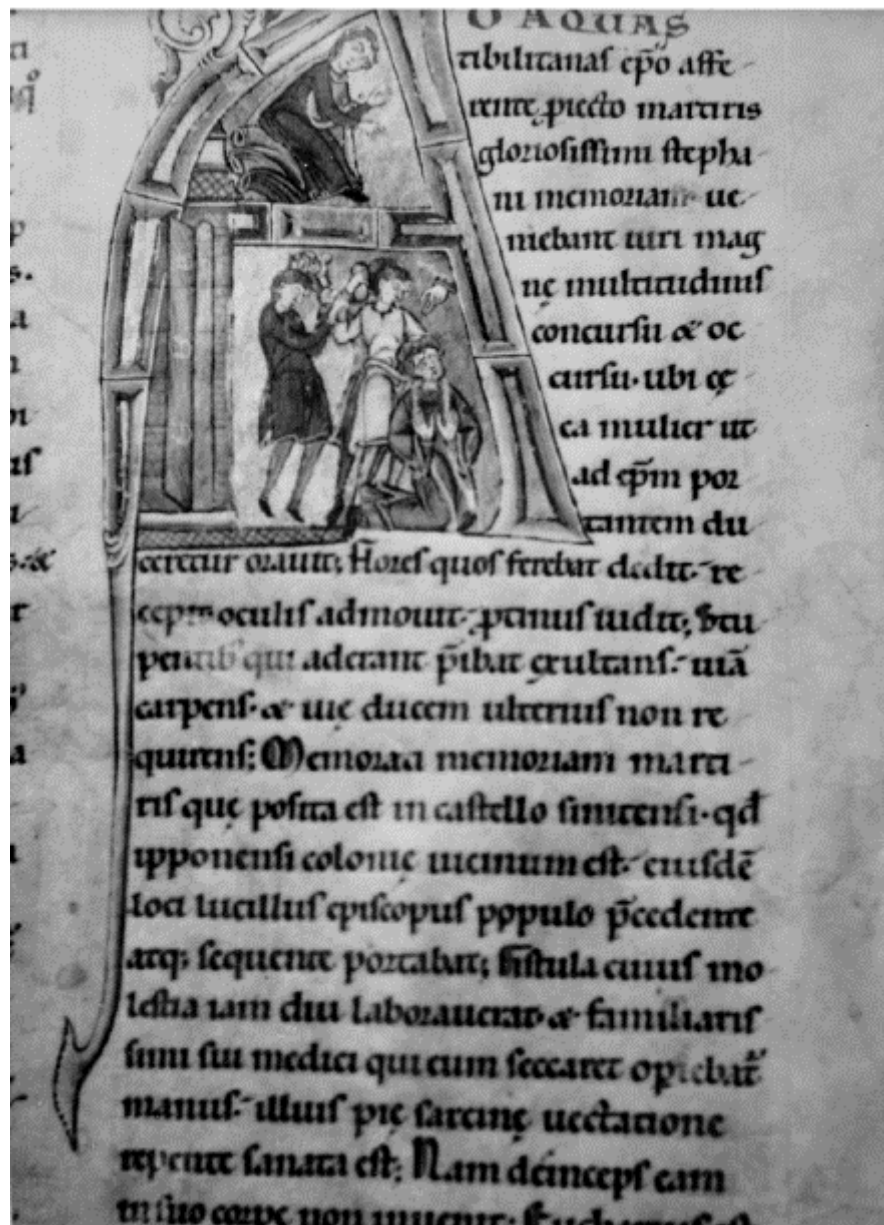 D AQUAS
tibilitanas ep̄o affe-
rente p̱iecto martiris
gloriosissimi stepha-
ni memoriam ue-
niebant uiri mag
nę multitudinis
concursu & oc
cursu· ubi cę
ca mulier ut
ad ep̄m por
tantem du
ceretur orauit; Flores quos ferebat dedit· re-
cepit oculis admouit· p̱tinus uidit; Stu
pentib' qui aderant p̄ibat exultans· uiā
carpens· & uię ducem ulterius non re-
quirens; Memorata memoriam marti-
ris quę posita est in castello sinitensi· qd̄
ipponensi colonię uicinum est· eiusdē
loci lucillus episcopus populo p̄cedente
atq; sequente portabat; Fistula cuius mo-
lestia iam diu laborauerat & familiaris
simi sui medici qui eum seccaret opiebat̄
manus· illius pię sarcinę uectatione
repente sanata est; Nam deinceps eam
in suo corpe non inuenit·